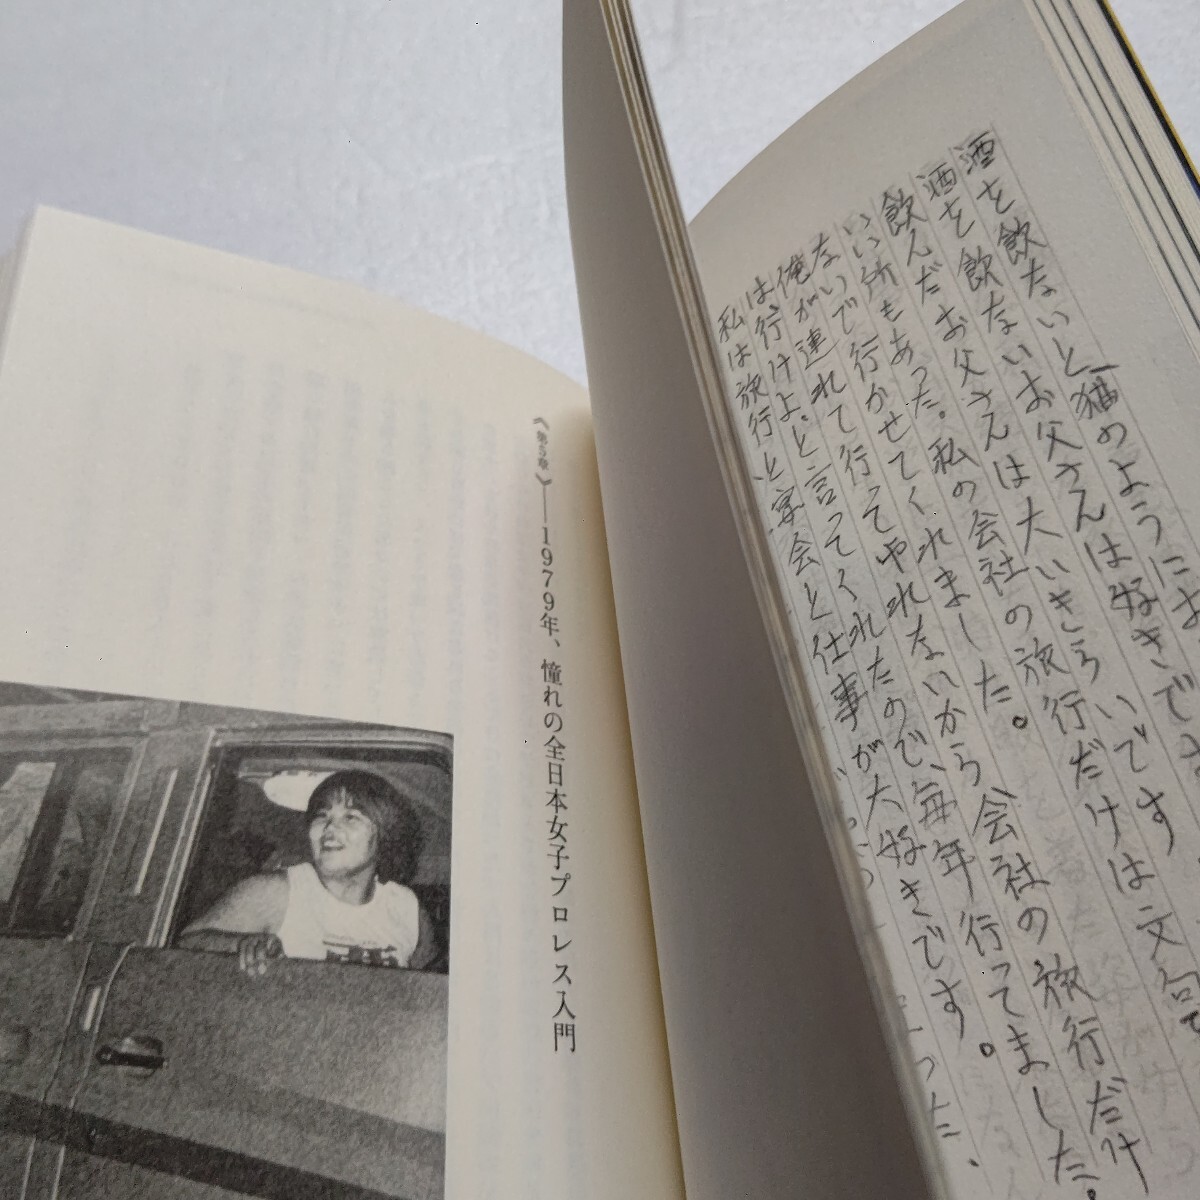 酒を飲ないと猫のようにお
酒を飲ないお父さんは好きです
飲んだお父さんは大いきらいです
いい所もあった。私の会社の旅行だけは文句
ないで行かせてくれました。
俺が連れて行ってやれないから会社の旅行だけ
は、行けよ。と言ってくれたので、毎年行ってました。
私は旅行と宴会と仕事が大好きです。
《第5章》——1979年、憧れの全日本女子プロレス入門